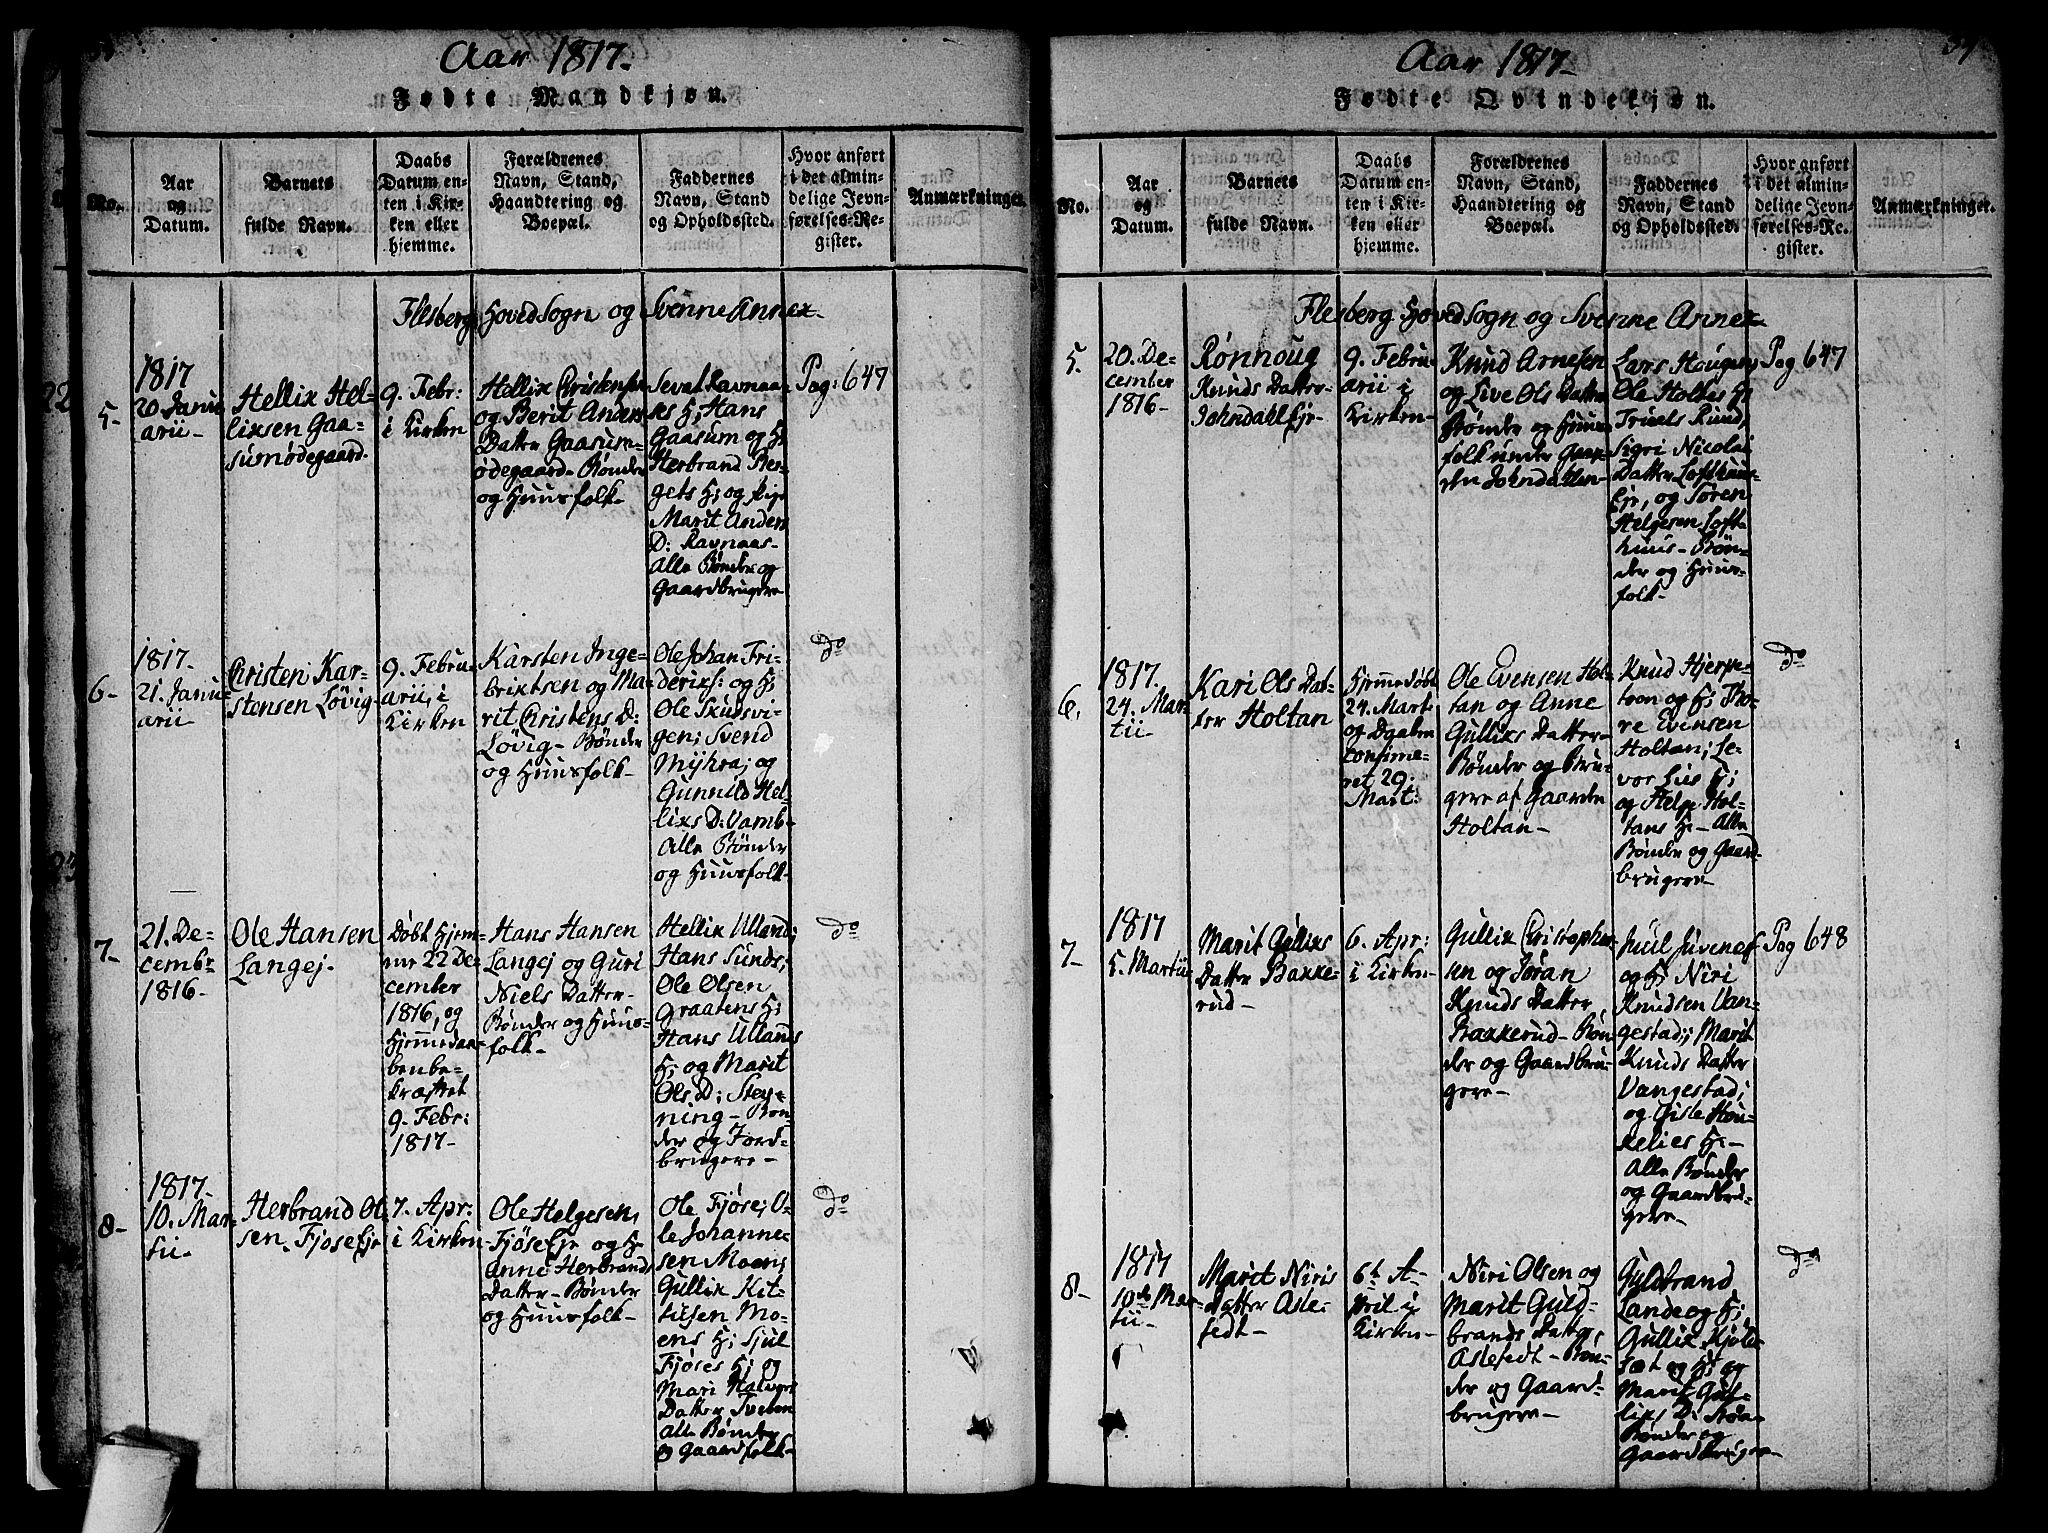 Aar 1817.
Fødte Mandkjøn.
No.
Aar
og
Datum.
Barnets
fulde Navn.
Daabs
Datum en-
ten i Kir-
ken eller
hjemme.
Forældrenes
Navn, Stand,
Haandtering og
Boepæl.
Faddernes
Navn, Stand
og Opholdssted.
Hvor anført
i det almin-
delige Jevn-
førelses-Re-
gister.
Anmærkninger.
Flesberg HovedSogn og Svenne Annex.
5-
1817
20 Janu
arii-
Hellix Hel-
lixsen Gaa-
sumødegaard.
9. Febr:
i Kirken
Hellix Christensen
og Berit Anders
Datter Gaasum-
ødegaard- Bønder
og Huusfolk-
Sevat Ravnaa-
ses H; Hans
Gaasum og H;
Herbrand Ber-
gets H; og Pige
Marit Anders
D: Ravnaas-
Alle Bønder og
Gaardbrugere
Pag: 647
6-
1817.
21. Janu-
arii
Christen Kar-
stensen Løvig-
9. Febru-
arii, i
Kirken
Karsten Inge-
brixtsen og Ma-
rit Christens D:
Løvig- Bønder
og Huusfolk-
Ole Johan Fri-
derixs: og H;
Ole Skudsvi-
gen; Svend
Myhra; og
Gunnild Hel-
lixs D: Vamb-
Alle Bønder
og Huusfolk-
do
7-
21. De-
cembr
1816-
Ole Hansen
Langej-
Døbt Hjem-
me 22 De-
cember
1816, og
Hjemmedaa-
ben be-
kræftet
9. Febr:
1817-
Hans Hansen
Langej og Guri
Niels Datter-
Bønder og Huus-
folk-
Hellix Ulland;
Hans Sunds;
Ole Olsen
Graatens H;
Hans Ullands
H; og Marit
Ols D: Stey-
ning- Bøn-
der og Jord-
brugere-
do
8-
1817.
10. Mar-
tii-
Herbrand Ol-
sen Fjøse Eje
7. Apr:
i Kirken
Ole Helgesen,
Fjøse Eje og H;
Anne Herbrands
Datter- Bønder
og Huusfolk-
Ole Fjøse; O-
le Johanne-
sen Moen;
Gullix Kit-
tilsen Mo-
ens H; Sjul
Fjøses H; og
Mari Halvors
Datter Sveben
Alle Bønder
og Gaardfolk-
do
Aar 1817-
Fødte Qvindekjøn.
No.
Aar
og
Datum.
Barnets
fulde Navn.
Daabs
Datum en-
ten i Kir-
ken eller
hjemme.
Forældrenes
Navn, Stand,
Haandtering og
Boepæl.
Faddernes
Navn, Stand
og Opholdssted.
Hvor anført
i det almin-
delige Jevn-
førelses-Re-
gister.
Anmærkninger.
Flesberg HovedSogn og Svenne Annex
5.
20. De-
cember
1816-
Rønnoug
Knuds Datter
Johndahl Eje-
9. Febru-
arii i
Kirken-
Knud Arnesen
og Live Ols Datter
Bønder og Huus
folk under Gaar-
den Johndahlen-
Lars Hougen,
Ole Holtes H;
Truels Ruud,
Sigri Nicolai
Datter Lofthuus-
Eje, og Søren
Helgesen Loft-
huus- Bøn-
der og Huus-
folk-
Pag 647
6.
1817.
24. Mar-
tii-
Kari Ols Dat-
ter Holtan
Hjemmedøbt
24. Mart
og Daaben
confirme-
ret 29.
Mart:
Ole Evensen Hol-
tan og Anne
Gullixs Datter-
Bønder og Bru-
gere af Gaarden
Holtan-
Knud Hjerpe-
toon og H; Tho-
re Evensen
Holtan; Le-
vor Lies H;
og Helge Hol-
tans H- Alle
Bønder og Gaard-
brugere-
do
7-
1817
5. Martii
Marit Gullixs
Datter Bakke-
rud-
6. Apr:
i Kirken-
Gullix Christopher-
sen og Jøran
Knuds Datter,
Bakkerud- Bøn-
der og Gaardbru-
gere-
Juul Juvenes
og H; Niri
Knudsen Van-
gestad; Marit
Knuds Datter
Vangestad;
og Gisle Høn-
kelies H-
Alle Bønder
og Gaardbru-
gere-
Pag 648
8-
1817
10de Mar-
tii-
Marit Niris
Datter Asle-
fedt-
6te A-
pril i
Kirken-
Niri Olsen og
Marit Guld-
brands Datter
Aslefedt- Bøn-
der og Gaard-
brugere-
Guldbrand
Lande og H;
Gullix Kjøle-
sæt og H; og
Marit Gul-
lixs D:
Bønder og
Gaardbrugere-
do